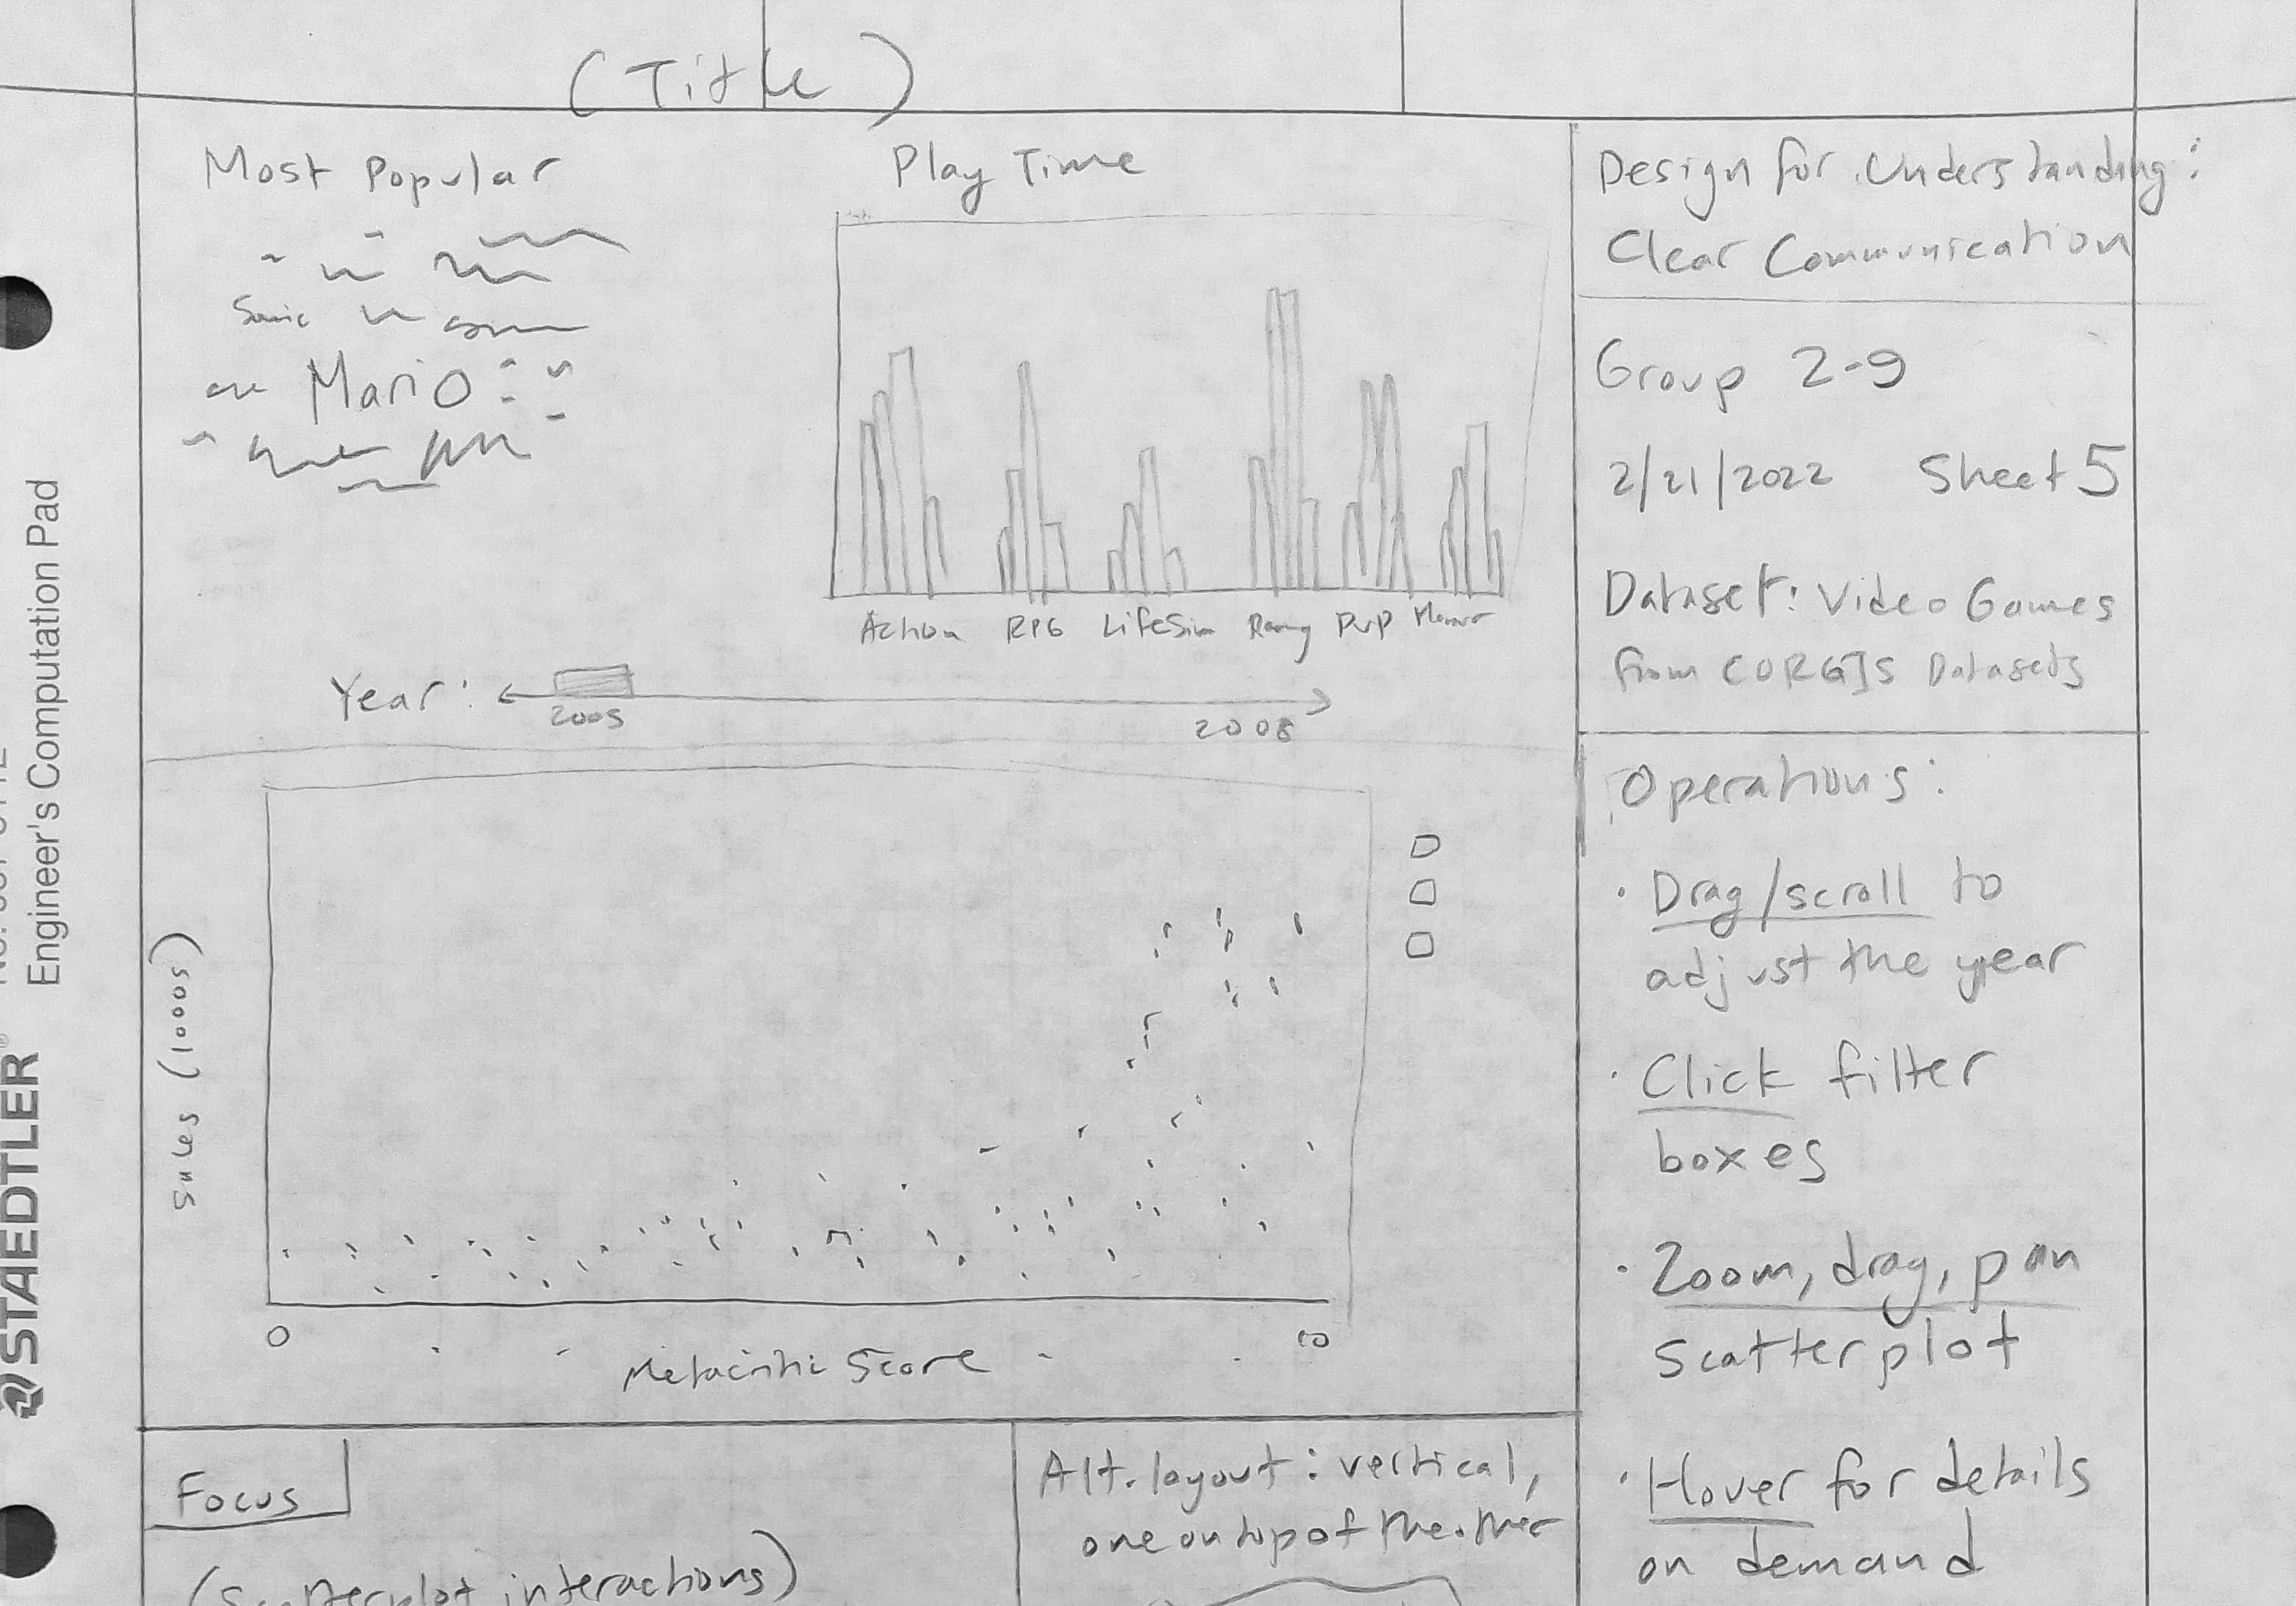 (Title)
Most Popular
Sonic
Mario
Play Time
Action RPG LifeSim Racing PvP
Year:
2005
2008
Sales (1000s)
0
10
Metacritic Score
Focus
(Scatterplot interactions)
Alt. layout: vertical,
one on top of the other
Design for Understanding:
Clear Communication
Group 2-9
2/21/2022 Sheet 5
Dataset: Video Games
from CORGIS Datasets
Operations:
· Drag/scroll to
adjust the year
· Click filter
boxes
· Zoom, drag, pan
scatterplot
· Hover for details
on demand
Engineer's Computation Pad
STAEDTLER®